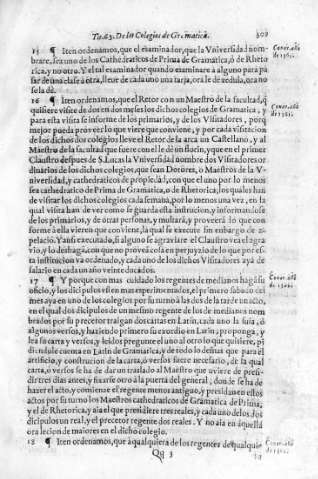 Tit. 63. De los Colegios de Gramatica. 302
15 ¶ Iten ordenamos, que el examinador, que la Vniversidad nom-
brare, sea uno de los Cathedraticos de Prima de Gramatica, ò de Rheto
rica, y no otro. Y el tal examinador quando examinare à alguno para pa
sar de una clase à otra, lleve de cada uno una tarja, ora le dè cedula, ora no
se la dè.
16 ¶ Iten ordenamos, que el Retor con un Maestro de la facultad, q̃
quisiere visite de dos en dos meses los dichos colegios de Gramatica, y
para esta visita se informe de los primarios, y de los Visitadores, porq̃
mejor pueda proveer lo que viere que conviene, y por cada visitacion
de los dichos dos colegios lleve el Retor de la arca un Castellano, y al
Maestro de la facultad que fuere con el le dè un florin, y que en el primer
Claustro despues de S. Lucas la Vniversidad nombre dos Visitadores or
dinarios de los dichos colegios, que sean Dotores, ò Maestros de la V-
niversidad, y cathedraticos de propiedad, con que el uno por lo menos
sea cathedratico de Prima de Gramatica, o de Rhetorica, los quales han
de visitar los dichos colegios cada semana, por lo menos una vez, en la
qual visita han de ver como se guarda esta instrucion, y informandose
de los primarios, y de otras personas, multarà, y proveerà lo que con-
forme à ella vieren que conviene, la qual se execute sin embargo de a-
pelacion. Y ansi executado, si alguno se agraviare el Claustro vea el agra
vio, y lo deshaga, con que no provea cosa en perjuyzio de lo que por es-
ta institucion va ordenado, y cada uno de los dichos Visitadores aya de
salario en cada un año veinte ducados.
17 ¶ Y porque con mas cuidado los regentes de medianos hagã su
oficio, y los dicipulos estèn mas experimentados, el primero sabado del
mes aya en uno de los colegios por su turno à las dos de la tarde un acto,
en el qual dos dicipulos de un mesmo regente de los de medianos nom
brados por su precetor traigan dos cartas en Latin, cada uno la suia, ò
algunos versos, y haziendo primero su exordio en Latin; proponga, y
lea su carta y versos, y leidos pregunte el uno al otro lo que quisiere, pi
diendole cuenta en Latin de Gramatica, y de todo lo demas que para el
artificio, y construcion de la carta, ò versos fuere necesario, de la qual
carta, o versos se ha de dar un traslado al Maestro que uviere de presi-
dir tres dias antes, y fixarse otro à la puerta del general, donde se ha de
hazer el acto, y comience el regente menos antiguo, y presidan en estos
actos por su turno los Maestros cathedraticos de Gramatica de Prima,
y el de Rhetorica, y aia el que presidiere tres reales, y cada uno de los dos
dicipulos un real, y el precetor regente dos reales. Y no aia en aquella
ora lecion de maiores en el dicho colegio.
18 ¶ Iten ordenamos, que à qualquiera de los regentes de qualquie
Qq 3